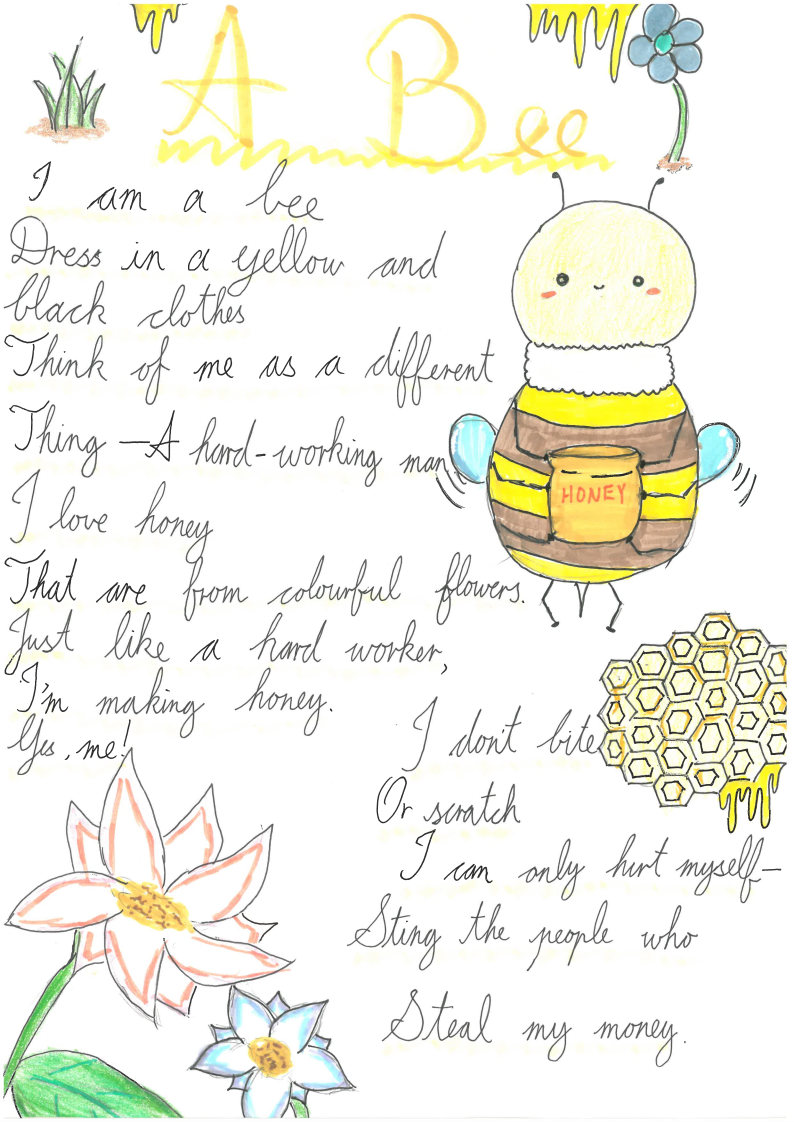 A Bee
I am a bee
Dress in a yellow and
black clothes
Think of me as a different
Thing – A hard-working man
I love honey
HONEY
That are from colourful flowers.
Just like a hard worker,
I'm making honey.
Yes, me!
I don't bite
Or scratch
I can only hurt myself –
Sting the people who
Steal my money.